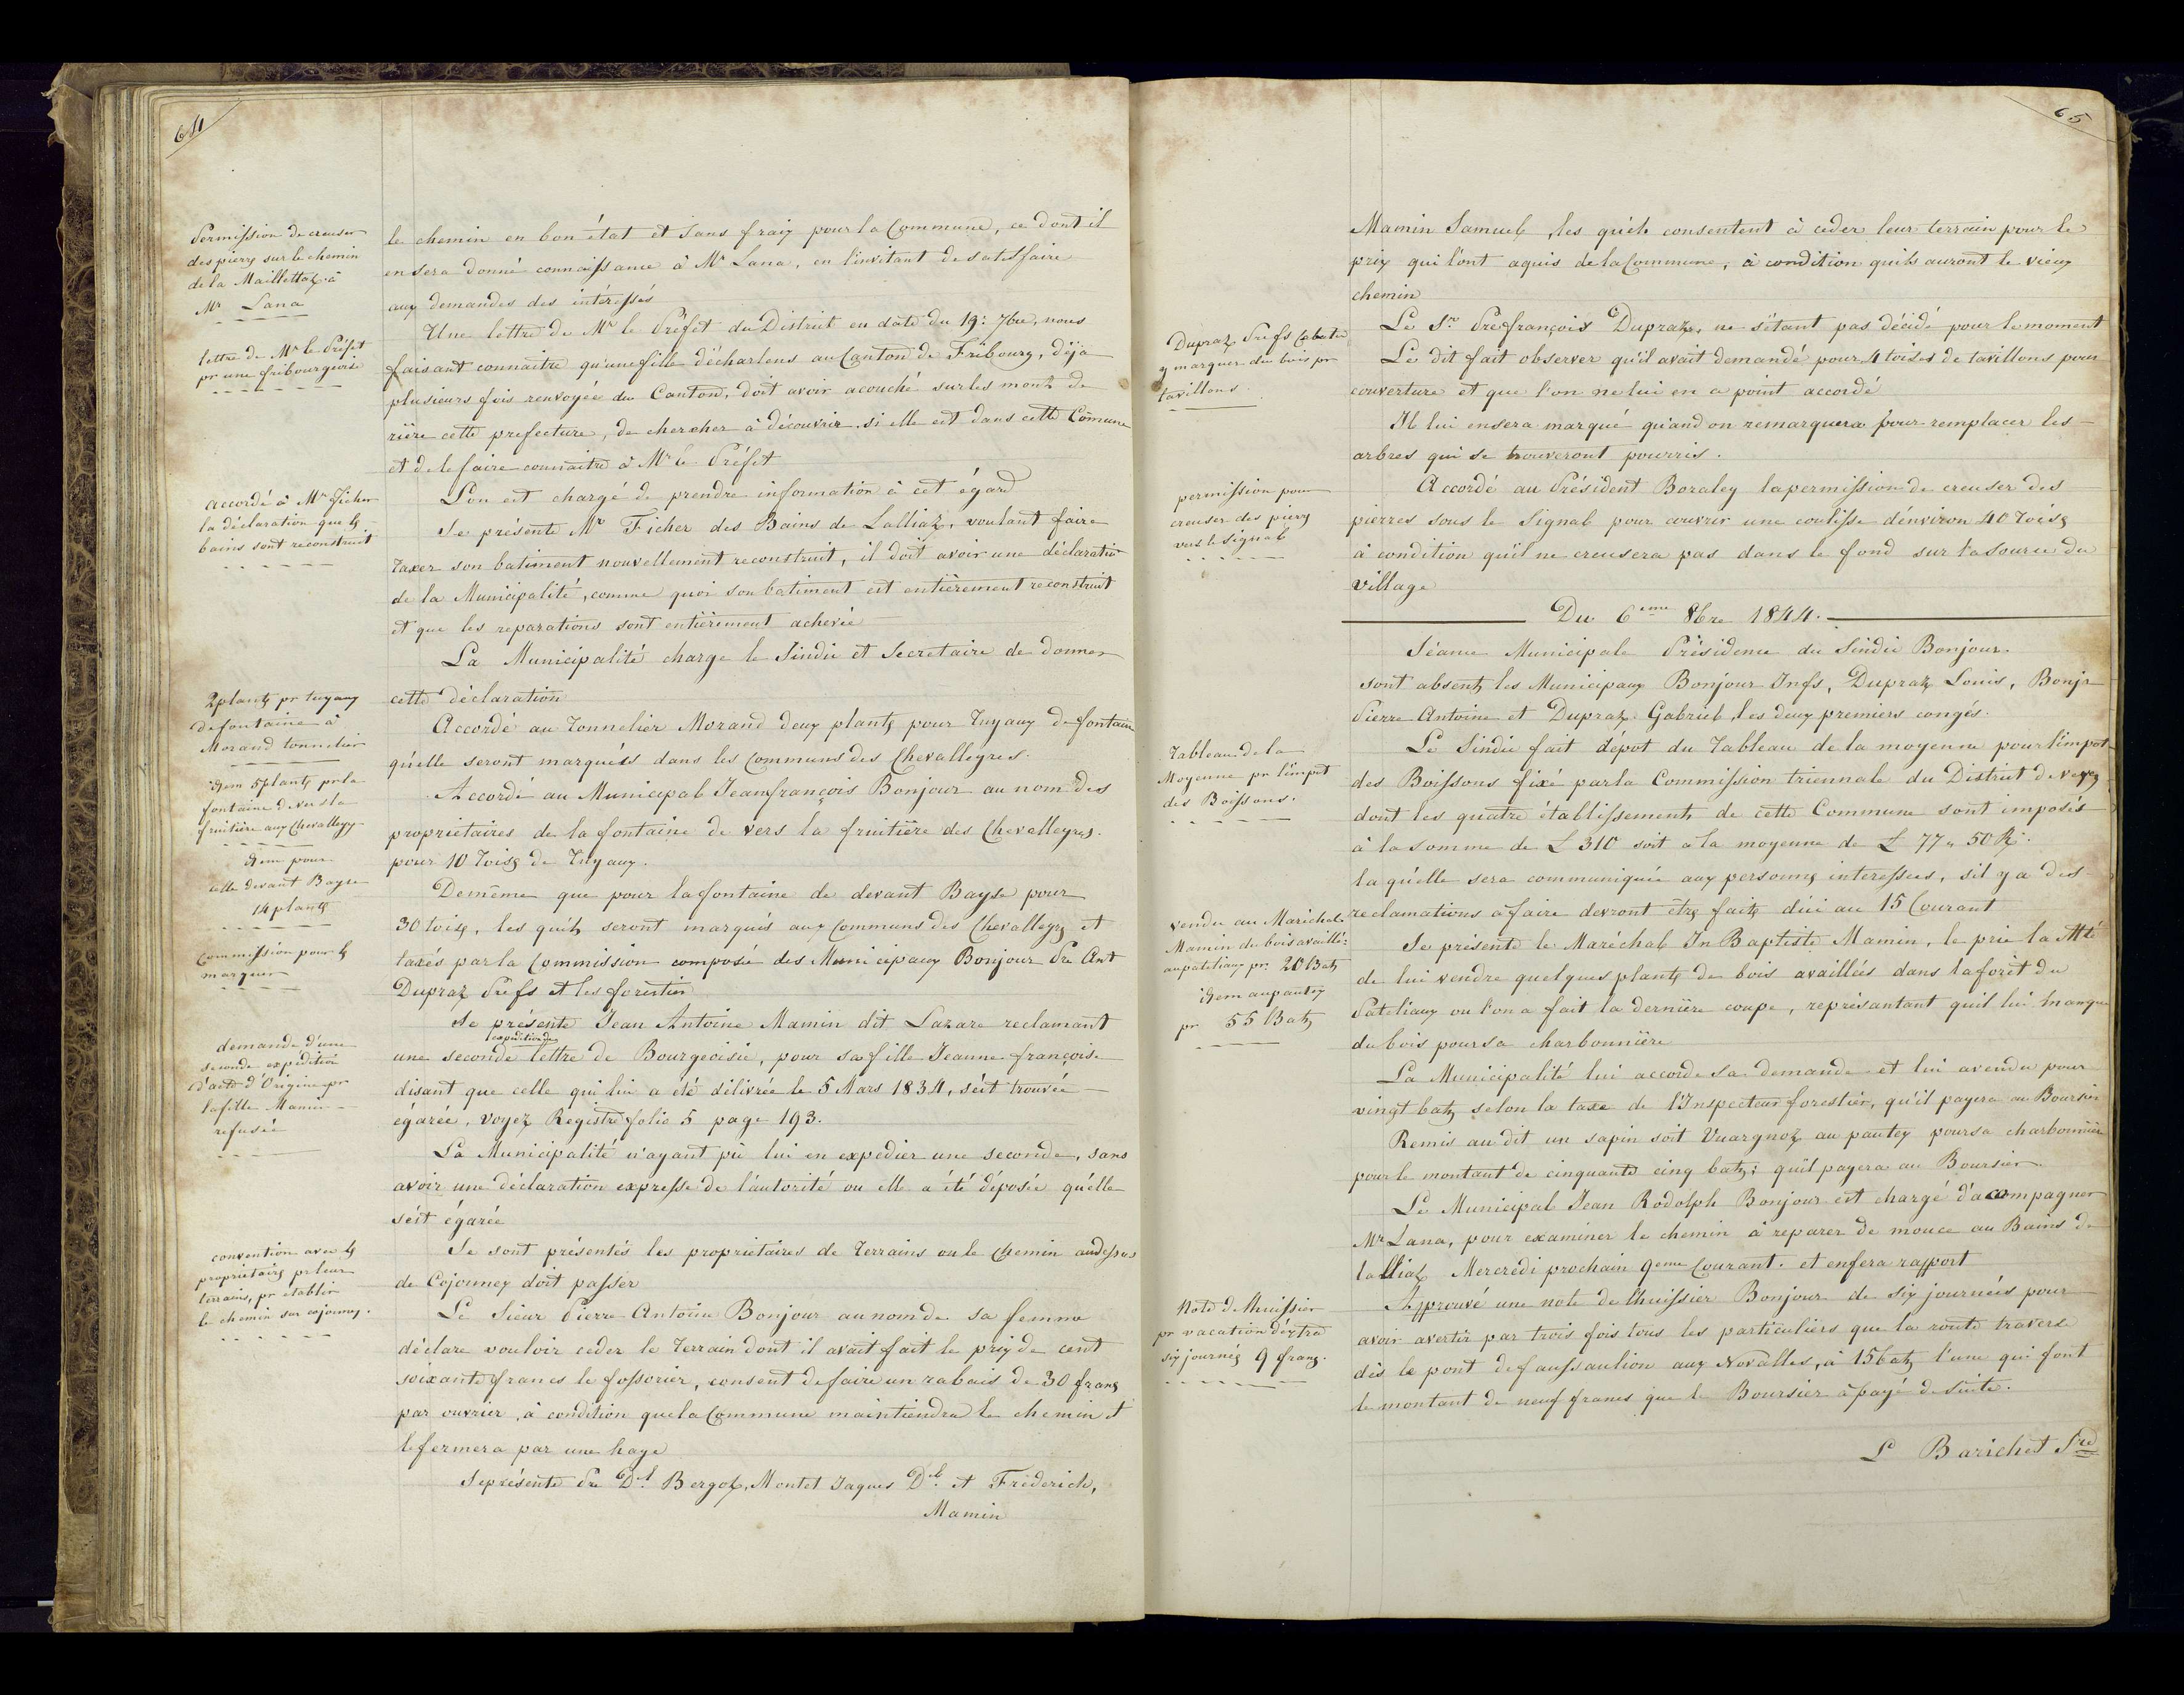 64
Permission de creuser
des pierrs sur le chemin
de la Maillettaz à
Mr Lana
lettre de Mr le Préfet
pr une fribourgeoise
accordé à Mr Ficher
la déclaration que ls
bains sont reconstruit
2 plants pr tuyaux
de fontaine à
Morand tonnelier
idem 5 plants pr la
fontaine de vers la
fruitière aux Chevalleyrs
idem pour
celle devant Bayse
14 plants
Commission pour ls
marquer
demande d'une
seconde expédition
d'acte d'Origine pr
la fille Mamin
refusée
convention avec ls
proprietairs pr leur
terrains, pr etablir
le chemin sur cojonney.
le chemin en bon état et sans fraix pour la Commune, ce dont il
en sera donné connaissance à Mr Lana, en l'invitant de satisfaire
aux demandes des intéressés
Une lettre de Mr le Préfet du District en date du 19: 7bre, nous
faisant connaitre qu'une fille d'écharlens au Canton de Fribourg, déja
plusieurs fois renvoyée du Canton, doit avoir acouché sur les monts de
rière cette prefecture, de chercher à découvrir si elle est dans cette Comune
et de le faire connaitre à Mr le Préfet
L'on est chargé de prendre information à cet égard
Se présente Mr Ficher des Bains de Lalliaz, voulant faire
taxer son batiment nouvellement reconstruit, il doit avoir une déclaratio
de la Municipalité, comme quoi son batiment est entièrement reconstruit
et que les reparations sont entièrement achevée
La Municipalité charge le Sindic et Secretaire de donner
cette déclaration
Accordé au Tonnelier Morand deux plants pour Tuyaux de fontaine
qu'elle seront marquéés dans les Communs des Chevalleyres.
Accordé au Municipal Jean françois Bonjour au nom des
proprietaires de la fontaine de vers la fruitière des Chevalleyres.
pour 10 Toiss de Tuyaux.
Demême que pour la fontaine de devant Bayse pour
30 toiss, les qu'els seront marqués aux Communs des Chevalleyrs et
taxés par la Commission composée des Municipaux Bonjour Pre Ant
Dupraz Prefs et les forestier
Se présente Jean Antoine Mamin dit Lazare reclamant
expédition de
une seconde lettre de Bourgeoisie, pour sa fille Jeanne françoise
disant que celle qui lui a été délivrée le 5 Mars 1834, s'est trouvée
égarée, voyez Registre folio 5 page 193.
La Municipalité n'ayant pû lui en expédier une seconde, sans
avoir une déclaration expresse de l'autorité ou elle a été déposée qu'elle
s'est égarée
Se sont présentés les proprietaires de Terrains ou le Chemin audessus
de Cojonney doit passer
Le Sieur Pierre Antoine Bonjour au nom de sa femme
déclare vouloir ceder le Terrain dont il avait fait le prix de cent
soixante francs le fossorier, consent de faire un rabais de 30 francs
par ouvrier, à condition que la Commune maintiendra le chemin et
le fermera par une haye
Se présente Pre Dl Bergoz, Montet Jaques Dl et Fréderich,
Mamin
65
Dupraz Prefs
y marquer du bois pr
tavillons.
permission pour
creuser des pierrs
vers le Signal
Tableau de la
Moyenne pr l'impot
des Boissons.
vendu au Maréchal
Mamin du bois availlé:
au pateliaux pr. 20 Batz
idem au pautex
pr 55 Batz
Note de l'huissier
pr vacation d'éxtra
six journés 9 francs.
Mamin Samuel, les qu'els consentent à ceder leur terrain pour le
prix qui l'ont aquis de la Commune, à condition quils auront le vieux
chemin
Le Sr Pre françois Dupraz, ne s'étant pas décidé pour le moment
Le dit fait observer qu'il avait demandé pour 4 toises de tavillons pour
couverture et que l'on ne lui en a point accordé
Il lui en sera marqué quand on remarquera pour remplacer les
arbres qui se trouveront pourris.
Accordé au Président Boraley la permission de creuser des
pierres sous le Signal pour couvrir une coulisse d'environ 40 Toiss
à condition qu'il ne creusera pas dans le fond sur la source du
village
Du 6eme 8bre 1844.
Séance Municipale Présidence du Sindic Bonjour.
sont absents les Municipaux Bonjour Jnfs, Dupraz Louis, Bonjr
Pierre Antoine et Dupraz Gabriel, les deux premiers congés.
Le Sindic fait dépot du Tableau de la moyenne pour l'impot
des Boissons fixé par la Commission triennale du District de Vevey
dont les quatre établissements de cette Commune sont imposés
à la somme de £ 310 soit a la moyenne de £ 77 " 50 Rz.
la qu'elle sera communiquée aux personnes interessées, s'il y a des
reclamations à faire devront êtres faits d'ici au 15 Courant
Se présente le Maréchal Jn Baptiste Mamin, le prie la Mté
de lui vendre quelques plants de bois availlées dans la forêt du
Pateliaux ou l'on a fait la dernière coupe, représantant qu'il lui manque
du bois pour sa charbonnière
La Municipalité lui accorde sa demande et lui a vendu pour
vingt batz selon la taxe de l'Inspecteur forestier, qu'il payera au Boursier
Remis au dit un sapin soit Vuargnoz au pautex pour sa charbonnière
pour le montant de cinquante cinq batz; qu'il payera au Boursier.
Le Municipal Jean Rodolph Bonjour est chargé d'acompagner
Mr Lana, pour examiner le chemin à reparer de mouce au Bains de
lalliaz Mercredi prochain 9eme Courant. et en fera rapport
Approuvé une note de l'huissier Bonjour de six journeés pour
avoir avertir par trois fois tous les particuliers que la route traverse
dès le pont de faussaulion aux Novalles, à 15 batz l'une qui font
le montant de neuf francs que le Boursier à payé de suite.
L Barichet Sre